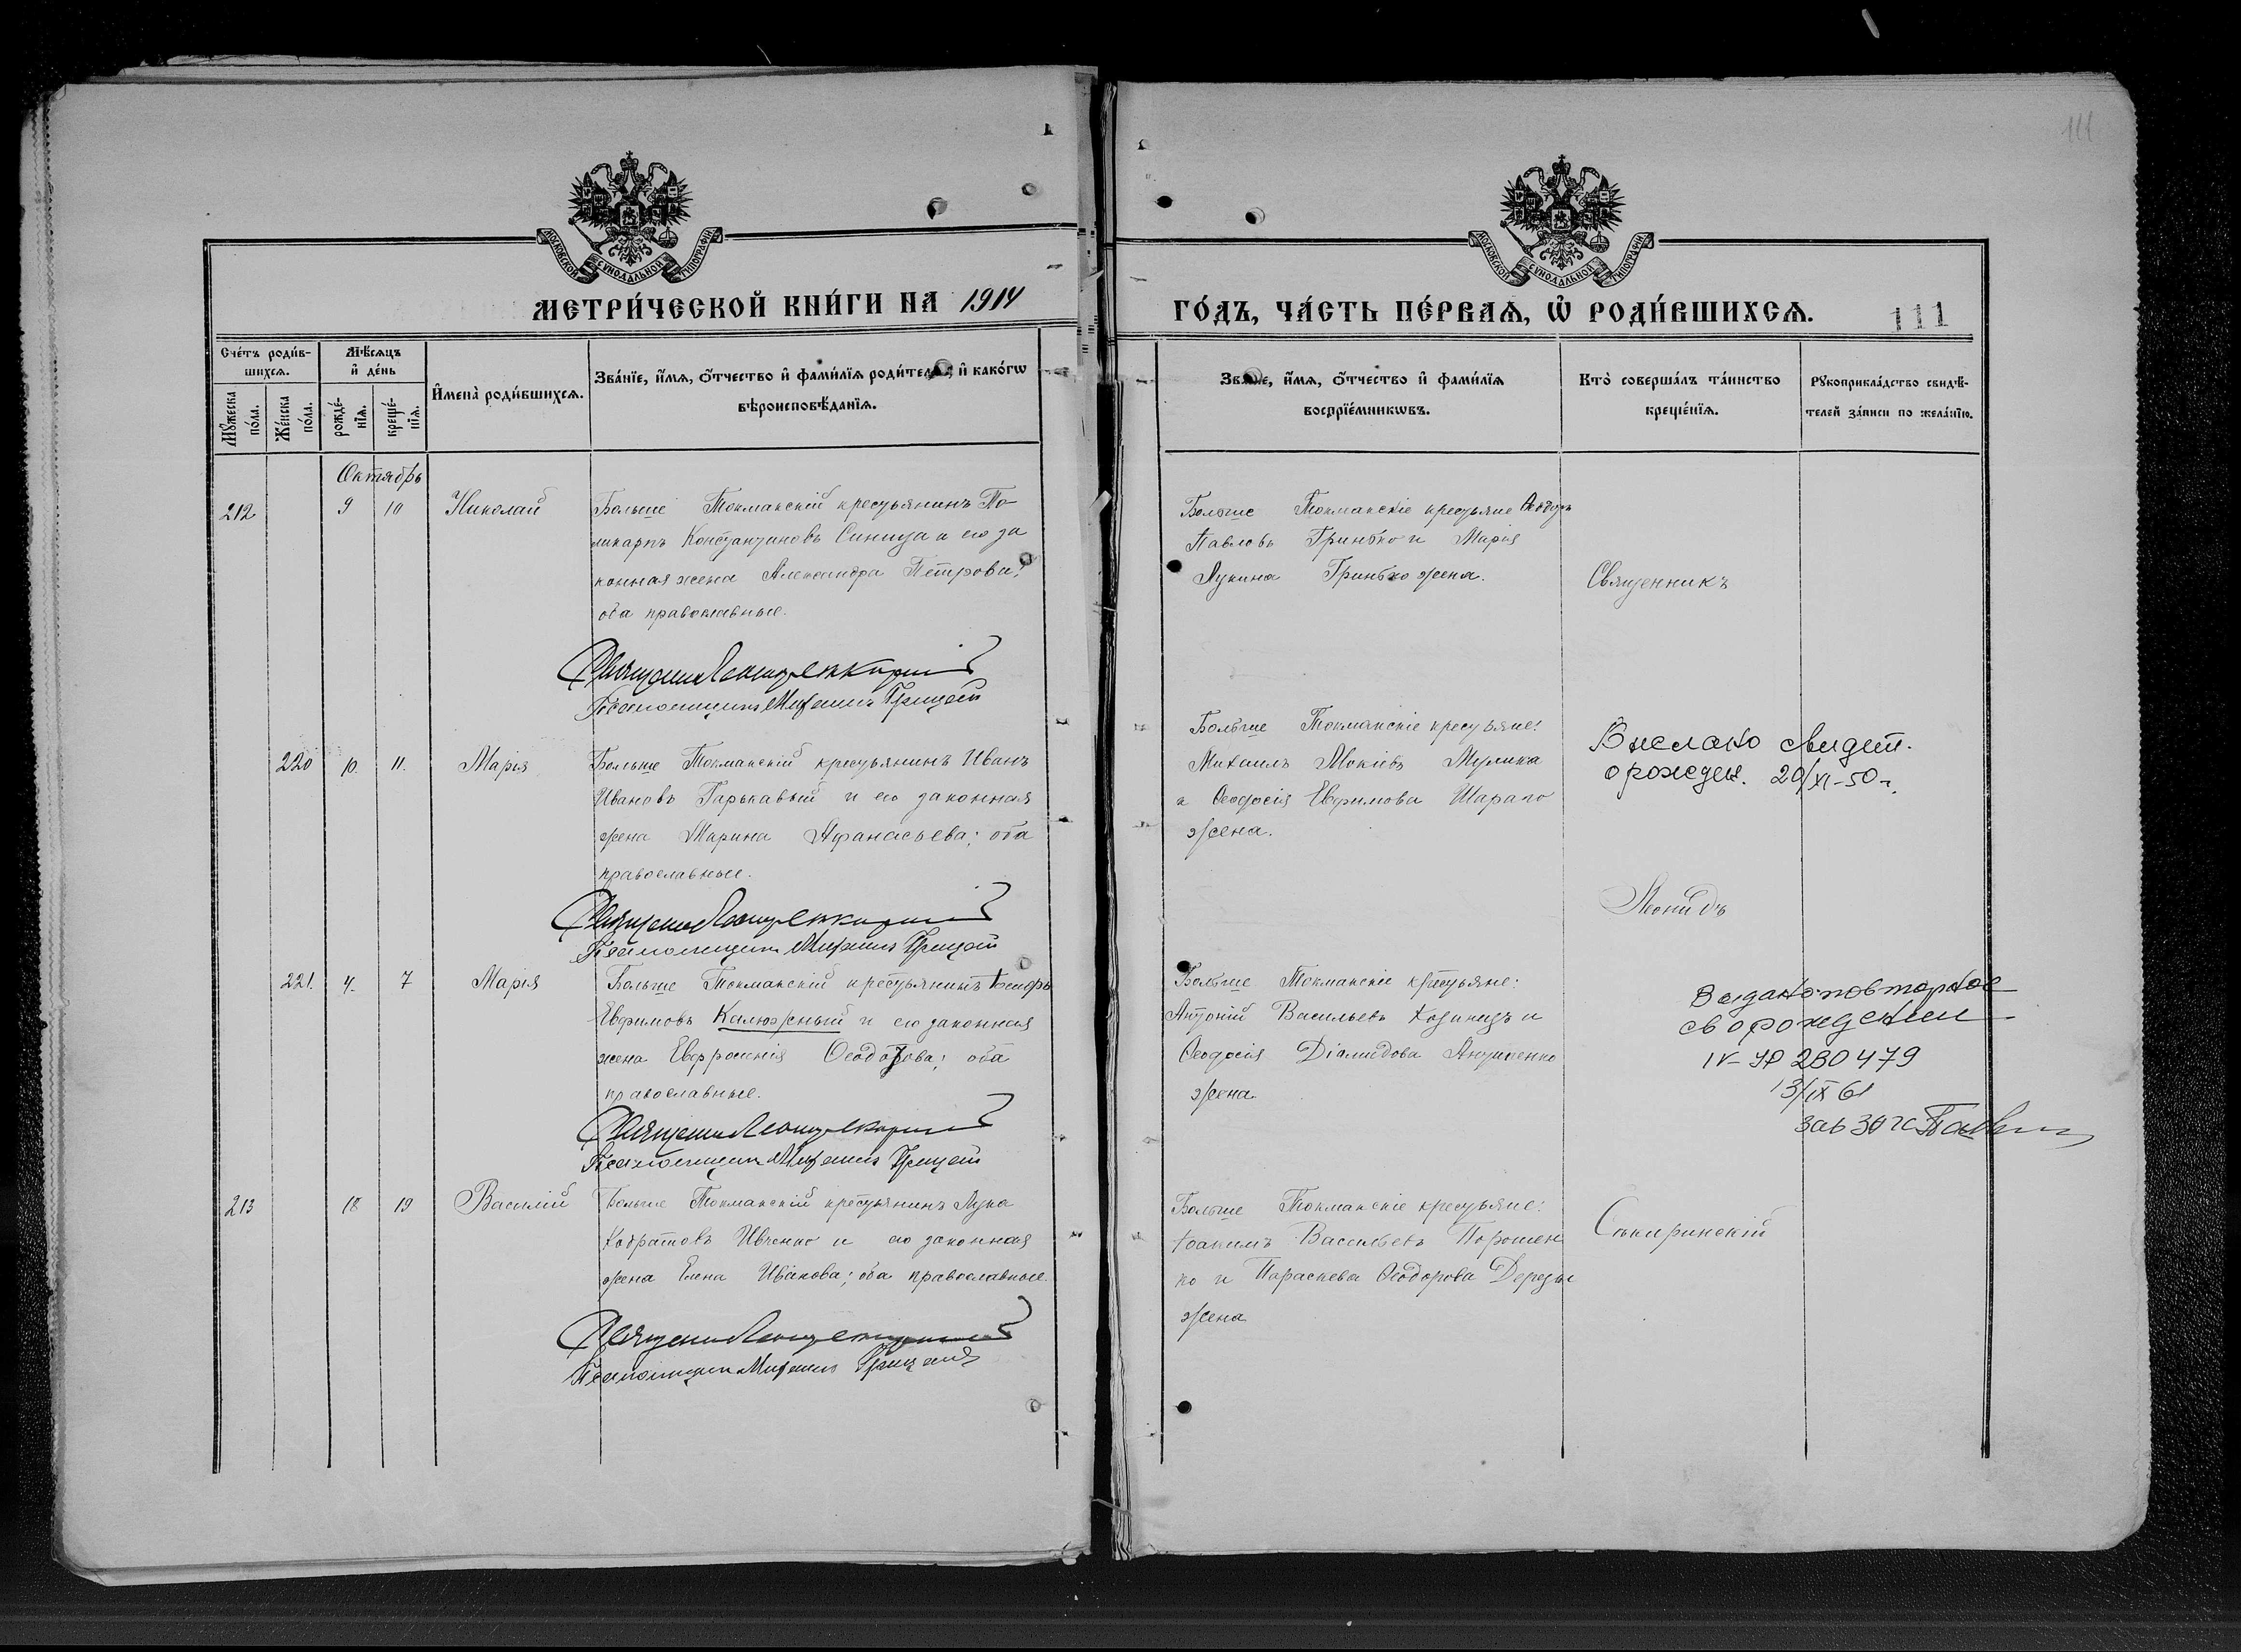 111
МОСКОВСКОЙ СѴНОДАЛЬНОЙ ТИПОГРАФІИ
МОСКОВСКОЙ СѴНОДАЛЬНОЙ ТИПОГРАФІИ
МЕТРИ́ЧЕСКОЙ КНИ́ГИ НА 1914
ГО́ДЪ, ЧА́СТЬ ПЕ́РВАѦ, Ѡ҆ РОДИ́ВШИХСѦ.
111
Сче́тъ роди́в-
шихсѧ.
Мꙋ́жеска по́ла.
Же́нска по́ла.
Мѣ́сѧцъ
и҆ де́нь
рожде́-нїѧ.
креще́-нїѧ.
И҆мена̀ роди́вшихсѧ.
Зва́нїе, и҆́мѧ, ѻ҆́тчество и҆ фами́лїѧ роди́телей, и҆ како́гѡ
вѣроисповѣ́данїѧ.
Зва́нїе, и҆́мѧ, ѻ҆́тчество и҆ фами́лїѧ
воспрїе́мникѡвъ.
Кто̀ соверша́лъ та́инство
креще́нїѧ.
Рꙋкоприкла́дство свидѣ́-
телей за́писи по жела́нїю.
Октябрь
212
9
10
Николай
Больше Токмакскій крестьянинъ По
ликарпъ Константиновъ Синица и его за
конная жена Александра Петрова;
оба православные.
Псаломщикъ Михаилъ Грицай
Больше Токмакскіе крестьяне
Павловъ Гринько и Марія
Лукина Гринько жена.
Священникъ
220
10.
11.
Марія
Больше Токмакскій крестьянинъ Иванъ
Ивановъ Гарькавый и его законная
жена Марина Афанасьева; оба
православные.
Псаломщикъ Михаилъ Грицай
Больше Токмакскіе крестьяне:
Михаилъ Мокіевъ Мулика
и Ѳеодосія Евфимова Шараго
жена.
Выслано свидет.
о рожден. 20/XI-50г.
Леонидъ
221.
4.
7
Марія
Больше Токмакскій крестьянинъ
Евфимовъ Калюжный и его законная
жена Евфросинія Ѳеодотова; оба
православные.
Псаломщикъ Михаилъ Грицай
Больше Токмакскіе крестьяне:
Антоній Васильевъ и
Ѳеодосія Діомидова
жена.
Выдано повторное
св о рождении
IV-ЯР 230479
13/IX 61
зав загс
213
18
19
Василій
Больше Токмакскій крестьянинъ Лука
Кодратовъ Ивченко и его законная
жена Елена Иванова; оба православные.
Псаломщикъ Михаилъ Грицай
Больше Токмакскіе крестьяне:
Іоакимъ Васильевъ Порошен
ко и Параскева Ѳеодорова
жена
Сѣкиринскій